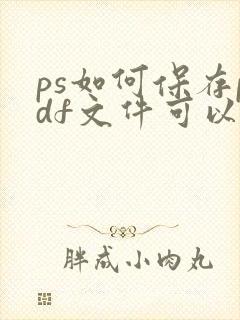 ps如何保存p
df文件可以
胖成小肉丸